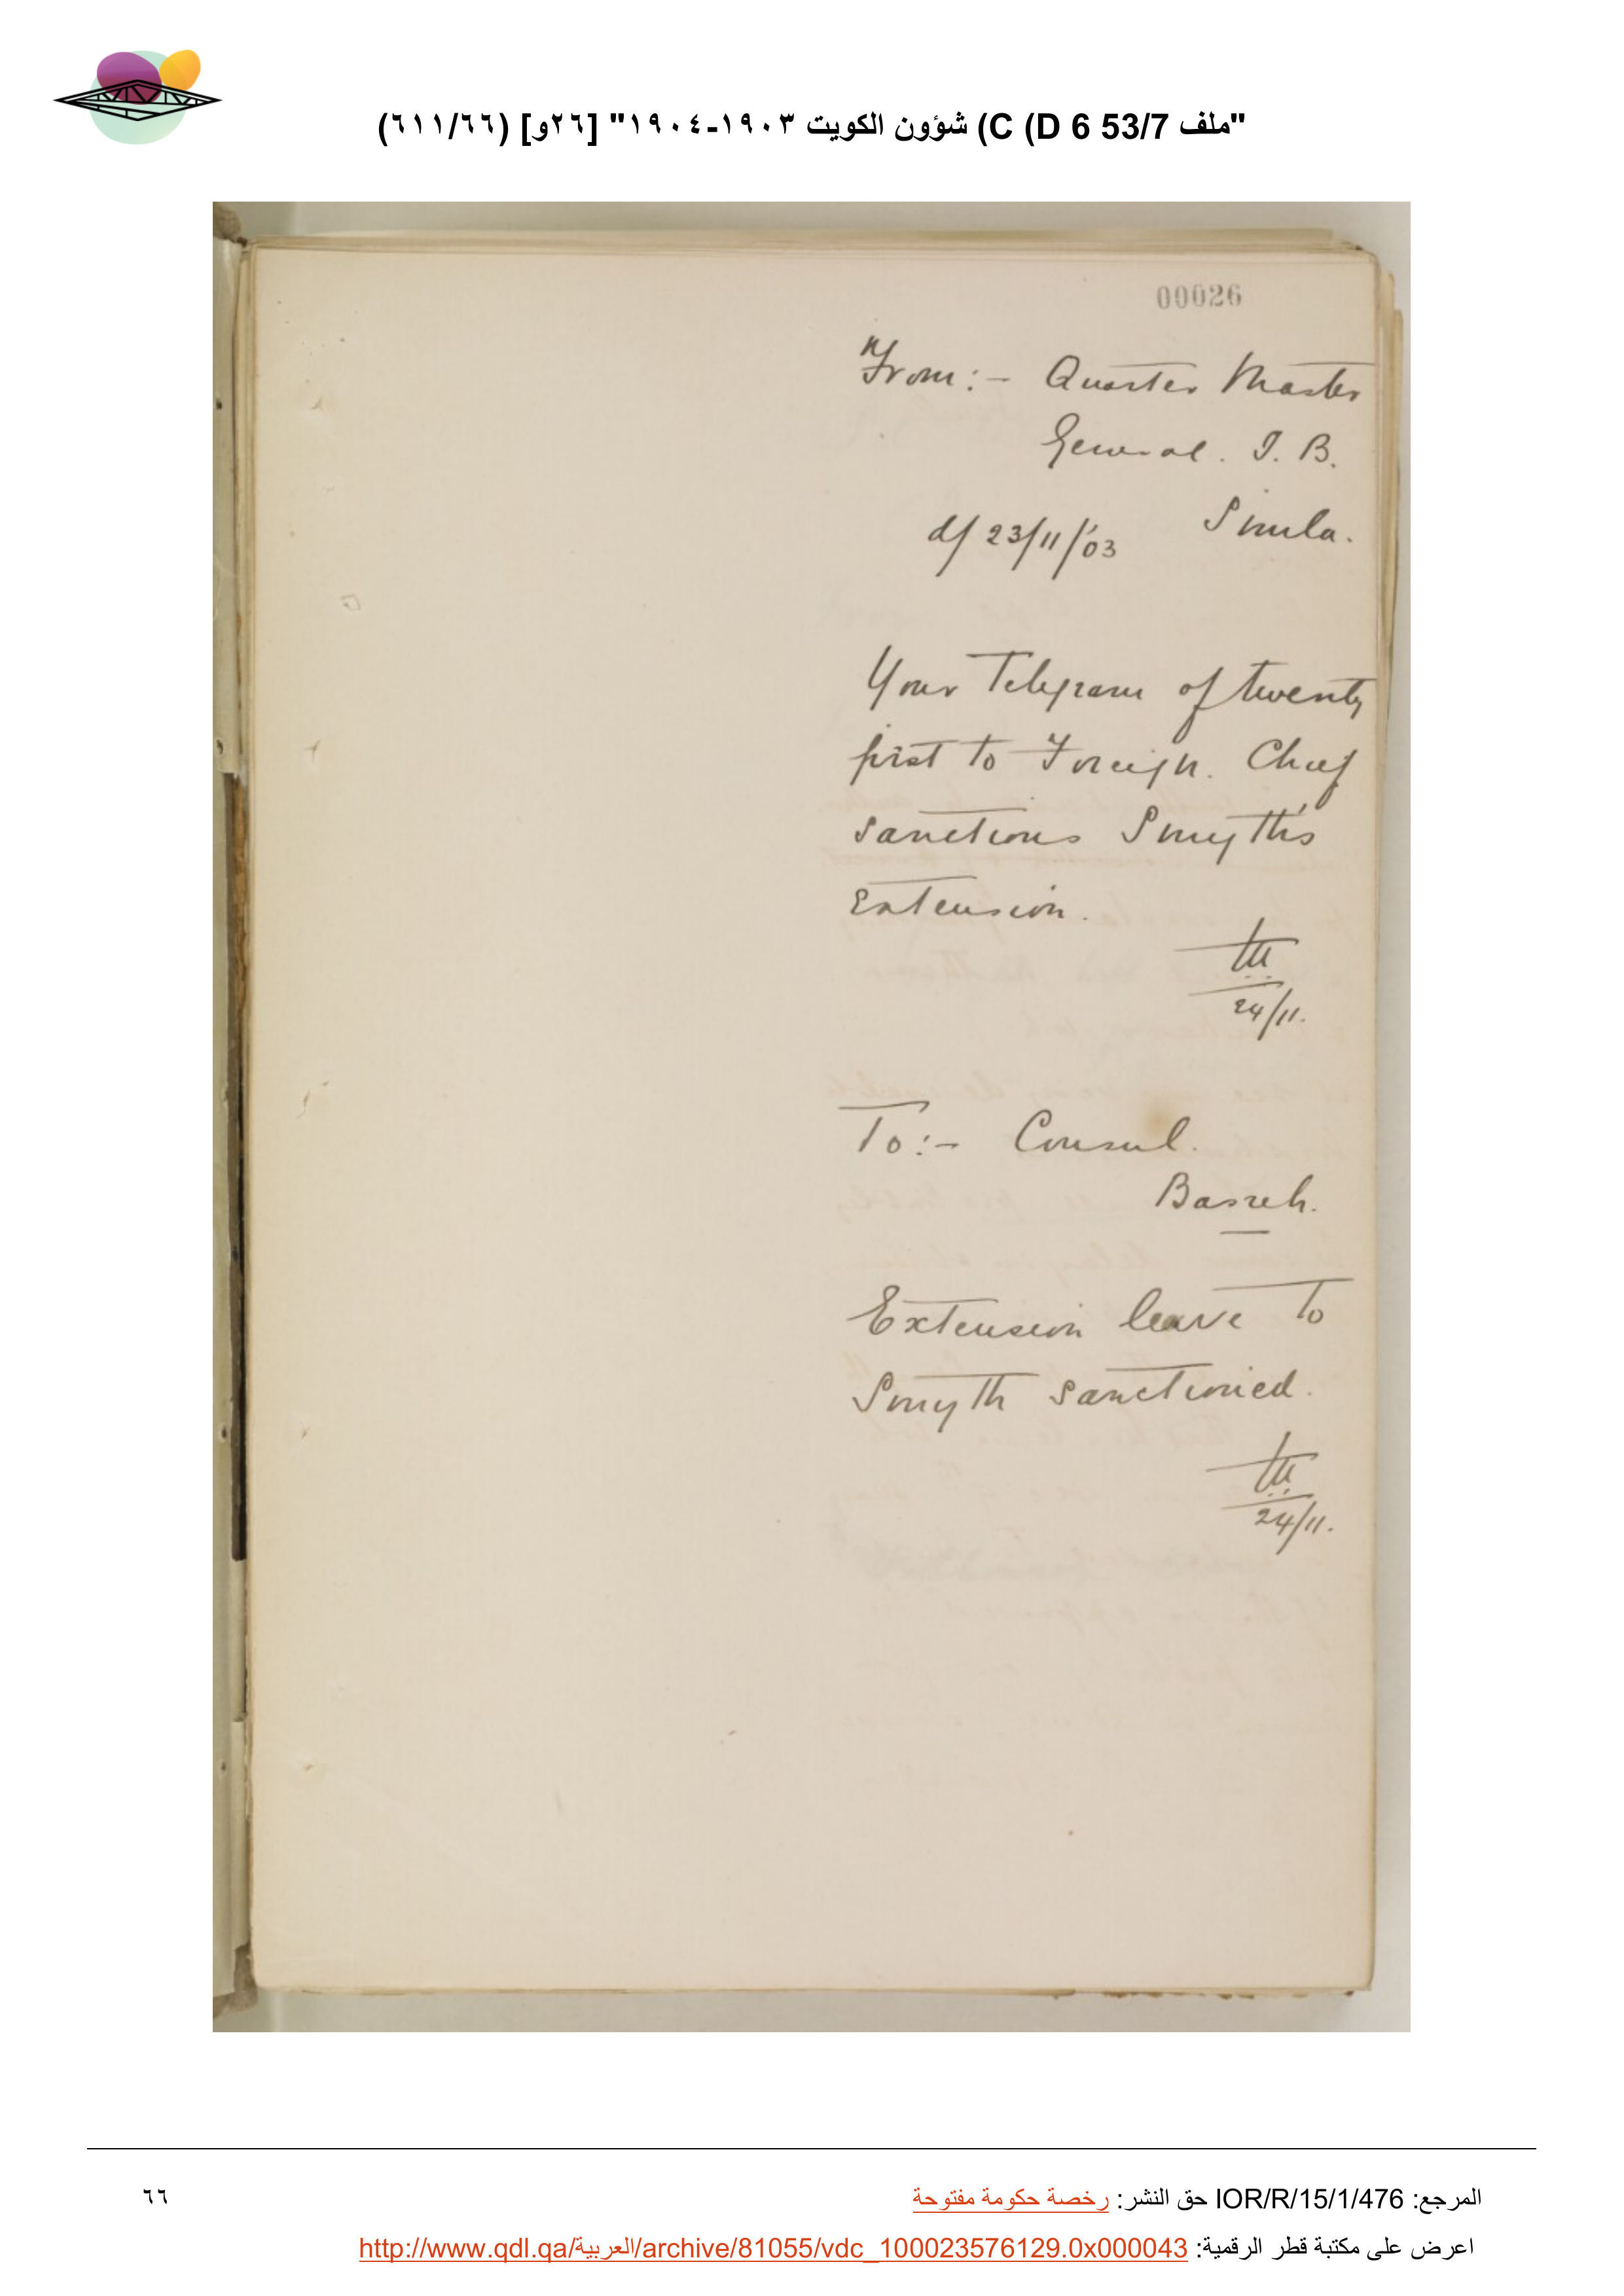 "ملف 53/7 C (D 6) شؤون الكويت ١٩٠٣-١٩٠٤" [٢٦و] (٦١١/٦٦)
00026
From:- Quarter Master
General. I. B.
Simla.
d/ 23/11/'03
Your Telegram of twenty
first to Foreign. Chief
sanctions Smyth's
extension.
24/11.
To:- Consul.
Basreh.
Extension leave to
Smyth sanctioned.
24/11.
المرجع: IOR/R/15/1/476 حق النشر: رخصة حكومة مفتوحة
٦٦
اعرض على مكتبة قطر الرقمية: http://www.qdl.qa/العربية/archive/81055/vdc_100023576129.0x000043